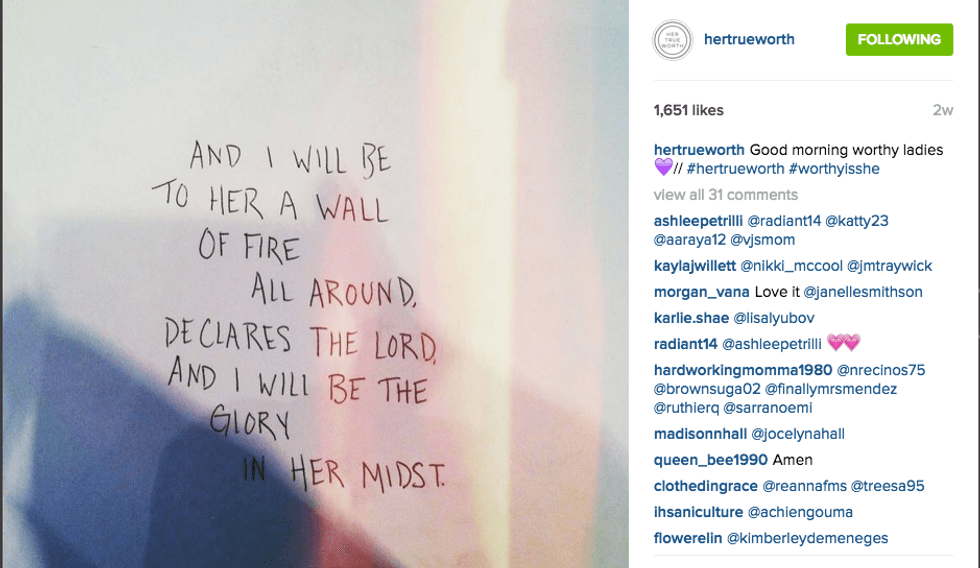 AND I WILL BE
TO HER A WALL
OF FIRE
ALL AROUND,
DECLARES THE LORD,
AND I WILL BE THE
GLORY
IN HER MIDST.
HER
TRUE
WORTH
hertrueworth
FOLLOWING
1,651 likes
2w
hertrueworth Good morning worthy ladies
💜// #hertrueworth #worthyisshe
view all 31 comments
ashleepetrilli @radiant14 @katty23
@aaraya12 @vjsmom
kaylajwillett @nikki_mccool @jmtraywick
morgan_vana Love it @janellesmithson
karlie.shae @lisalyubov
radiant14 @ashleepetrilli 💗💗
hardworkingmomma1980 @nrecinos75
@brownsuga02 @finallymrsmendez
@ruthierq @sarranoemi
madisonnhall @jocelynahall
queen_bee1990 Amen
clothedingrace @reannafms @treesa95
ihsaniculture @achiengouma
flowerelin @kimberleydemeneges